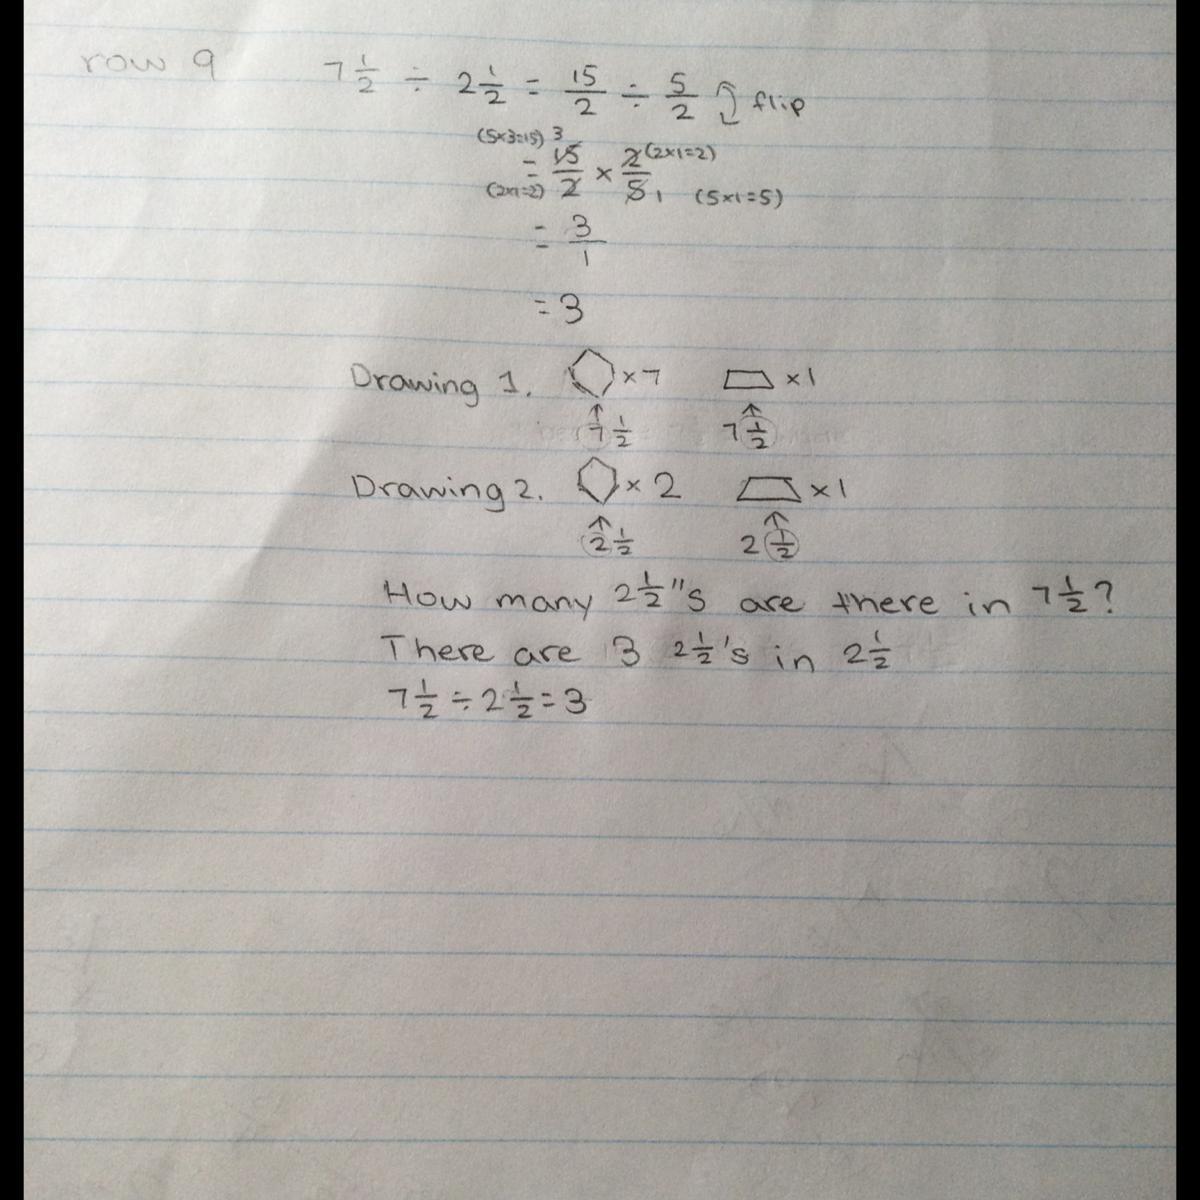 row 9 7 1/2 ÷ 2 1/2 = 15/2 ÷ 5/2 flip
(5x3=15) 3
= 15/2 x 2/5 (2x1=2)
(2x1=2) 1 (5x1=5)
= 3/1
= 3
Drawing 1. x7 x1
7 1/2 7 1/2
Drawing 2. x 2 x1
2 1/2 2 1/2
How many 2 1/2"s are there in 7 1/2?
There are 3 2 1/2's in 2 1/2
7 1/2 ÷ 2 1/2 = 3